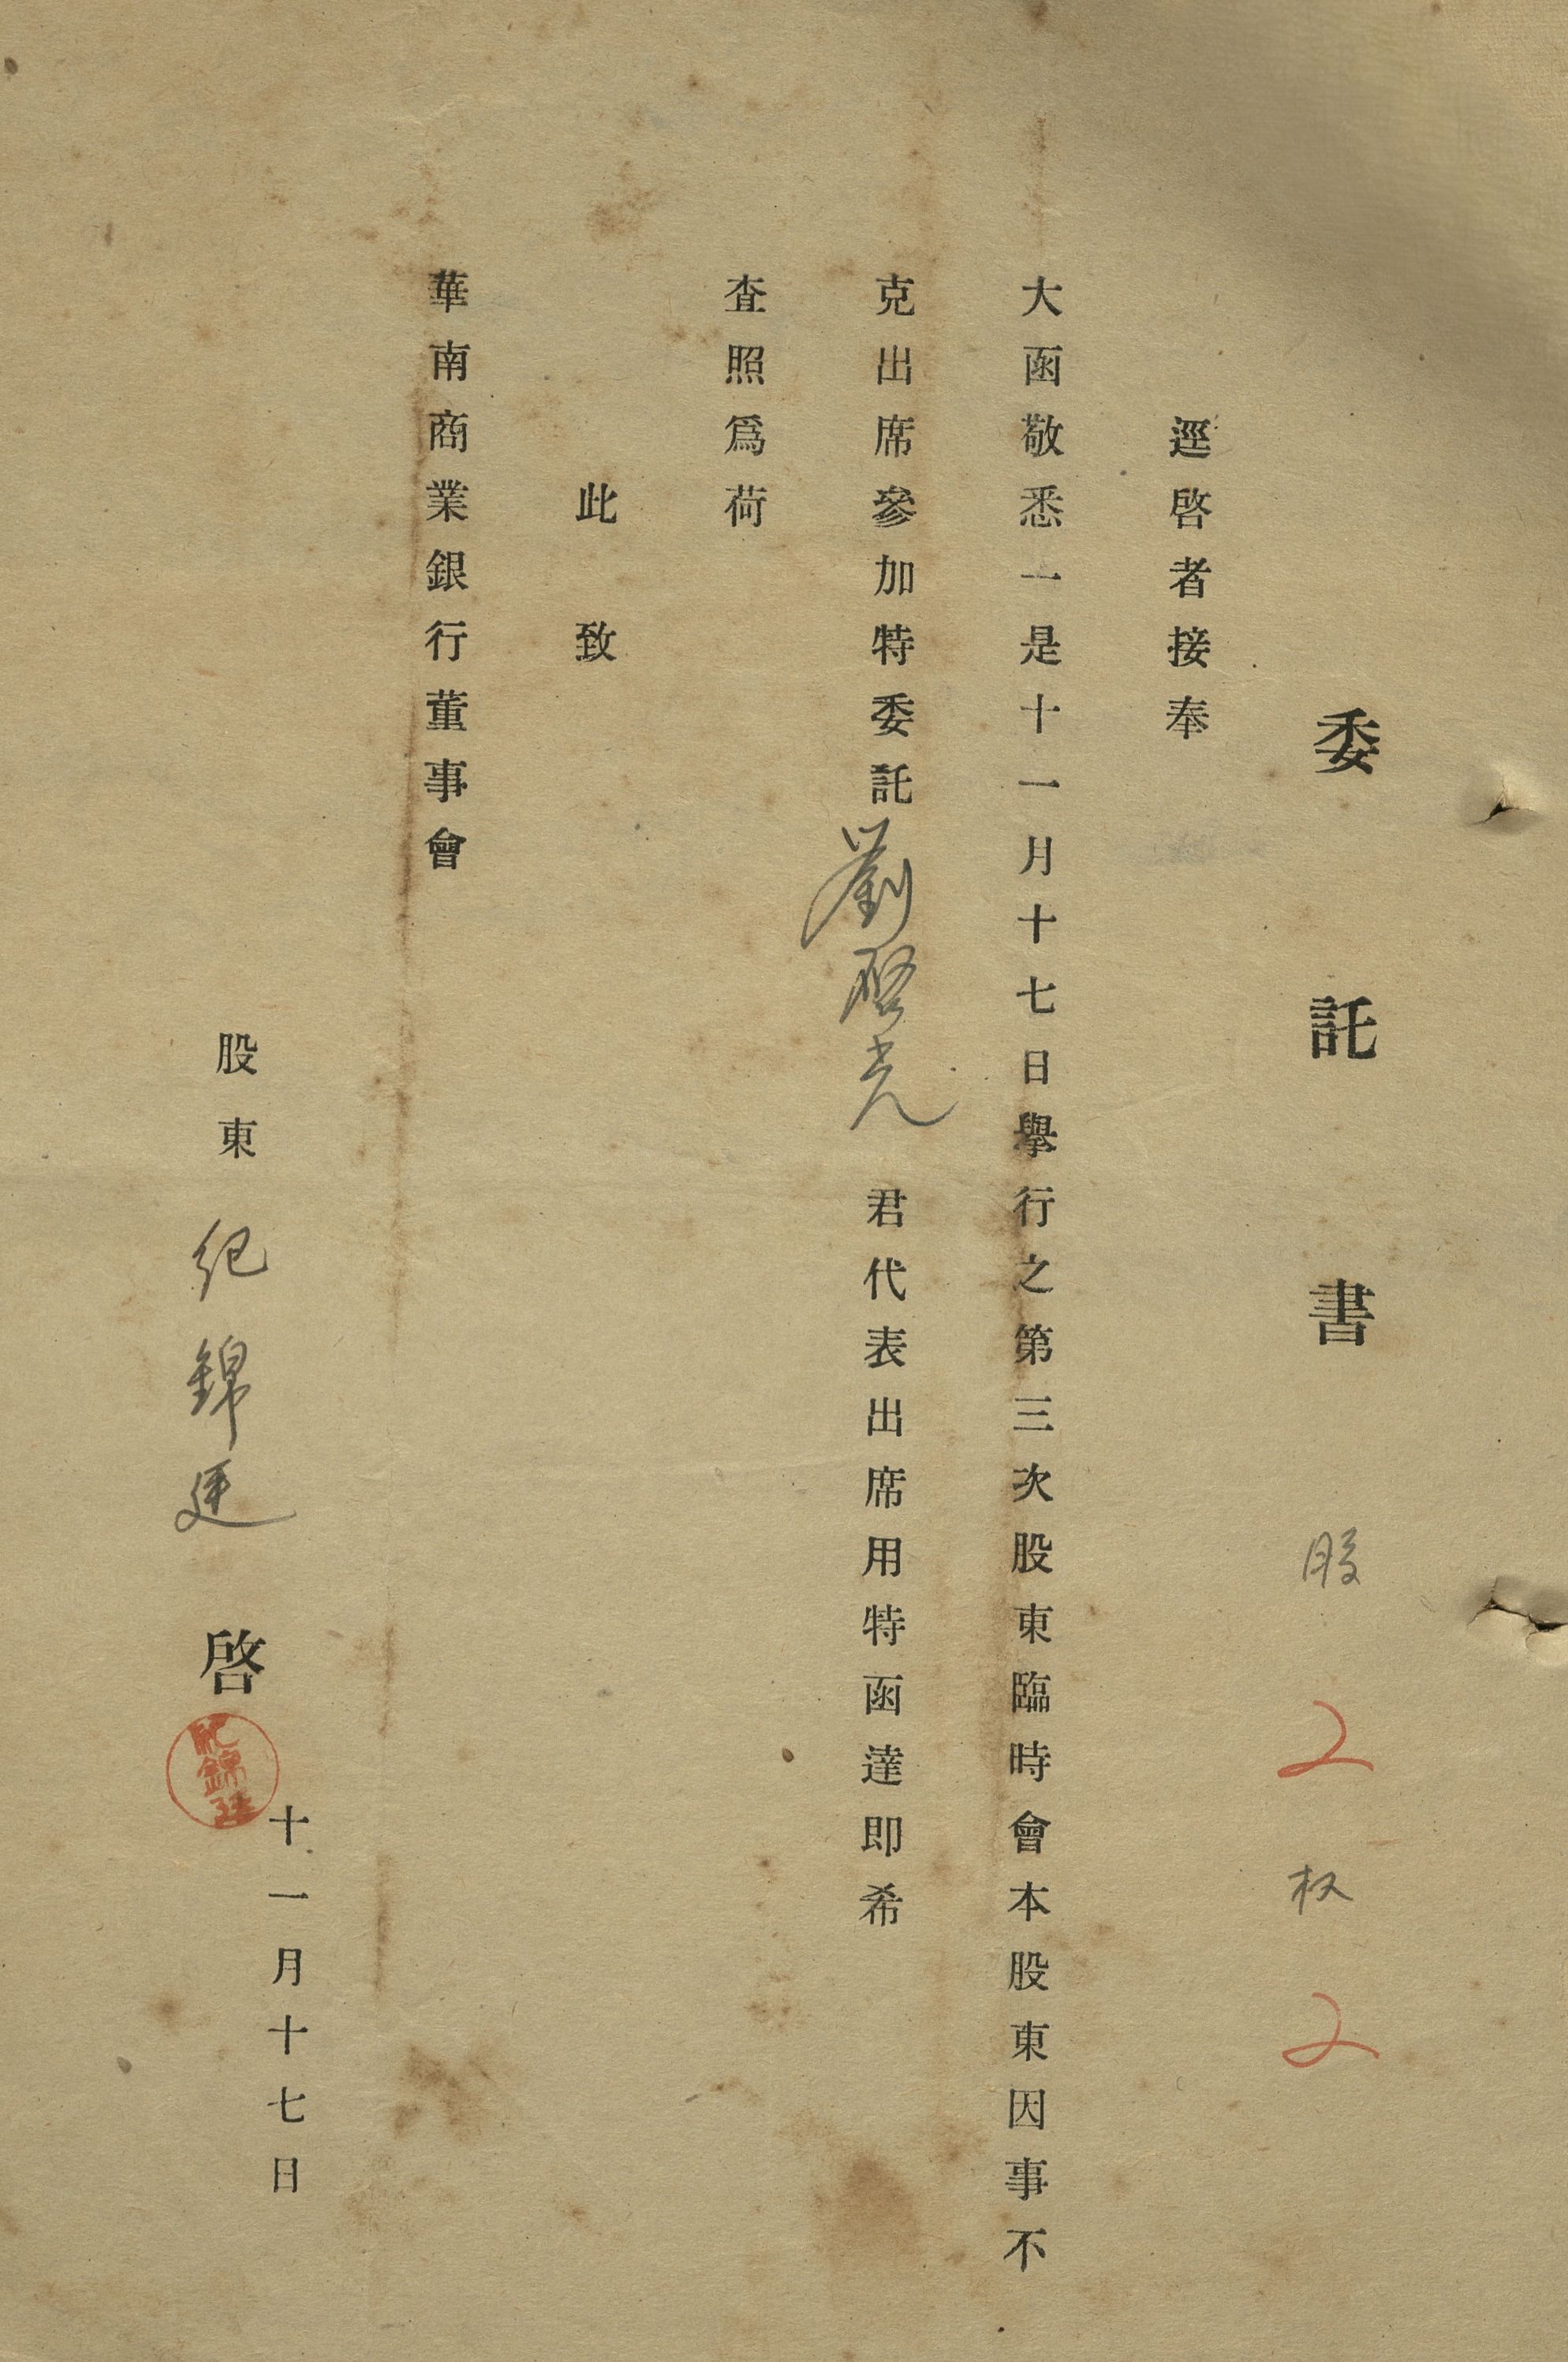 委託書 股 2 权 2
逕啓者接奉
大函敬悉一是十一月十七日舉行之第三次股東臨時會本股東因事不
克出席參加特委託劉啓光 君代表出席用特函達即希
查照爲荷
此致
華南商業銀行董事會
股東 紀錦廷 啓
十一月十七日